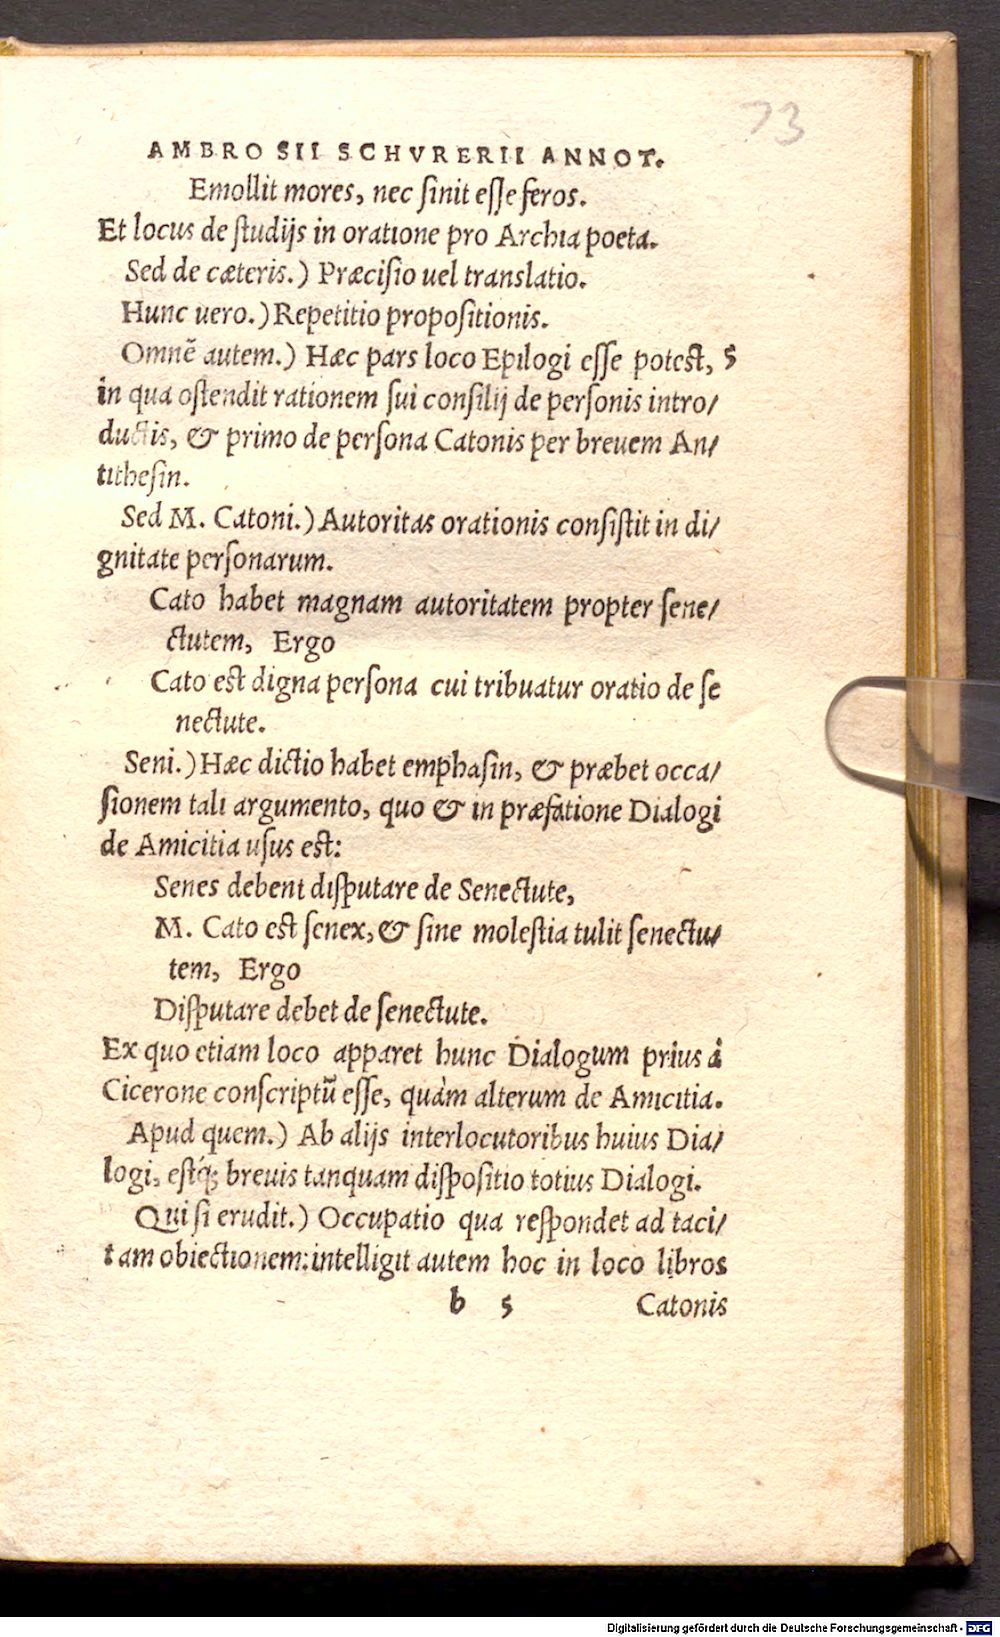 73
AMBROSII SCHVRERII ANNOT.
Emollit mores, nec ſinit eſſe feros.
Et locus de ſtudijs in oratione pro Archia poeta.
Sed de cæteris.) Præciſio uel translatio.
Hunc uero.) Repetitio propoſitionis.
Omnē autem.) Hæc pars loco Epilogi eſſe poteſt, 5
in qua oſtendit rationem ſui conſilij de perſonis intro/
ductis, & primo de perſona Catonis per breuem An/
titheſin.
Sed M. Catoni.) Autoritas orationis conſiſtit in di/
gnitate perſonarum.
Cato habet magnam autoritatem propter ſene/
ctutem, Ergo
Cato eſt digna perſona cui tribuatur oratio de ſe
nectute.
Seni.) Hæc dictio habet emphaſin, & præbet occa/
ſionem tali argumento, quo & in præfatione Dialogi
de Amicitia uſus eſt:
Senes debent diſputare de Senectute,
M. Cato eſt ſenex, & ſine moleſtia tulit ſenectu/
tem, Ergo
Diſputare debet de ſenectute.
Ex quo etiam loco apparet hunc Dialogum prius à
Cicerone conſcriptū eſſe, quàm alterum de Amicitia.
Apud quem.) Ab alijs interlocutoribus huius Dia/
logi, eſtq́; breuis tanquam diſpoſitio totius Dialogi.
Qui ſi erudit.) Occupatio qua reſpondet ad taci/
tam obiectionem: intelligit autem hoc in loco libros
b 5 Catonis
Digitalisierung gefördert durch die Deutsche Forschungsgemeinschaft - DFG